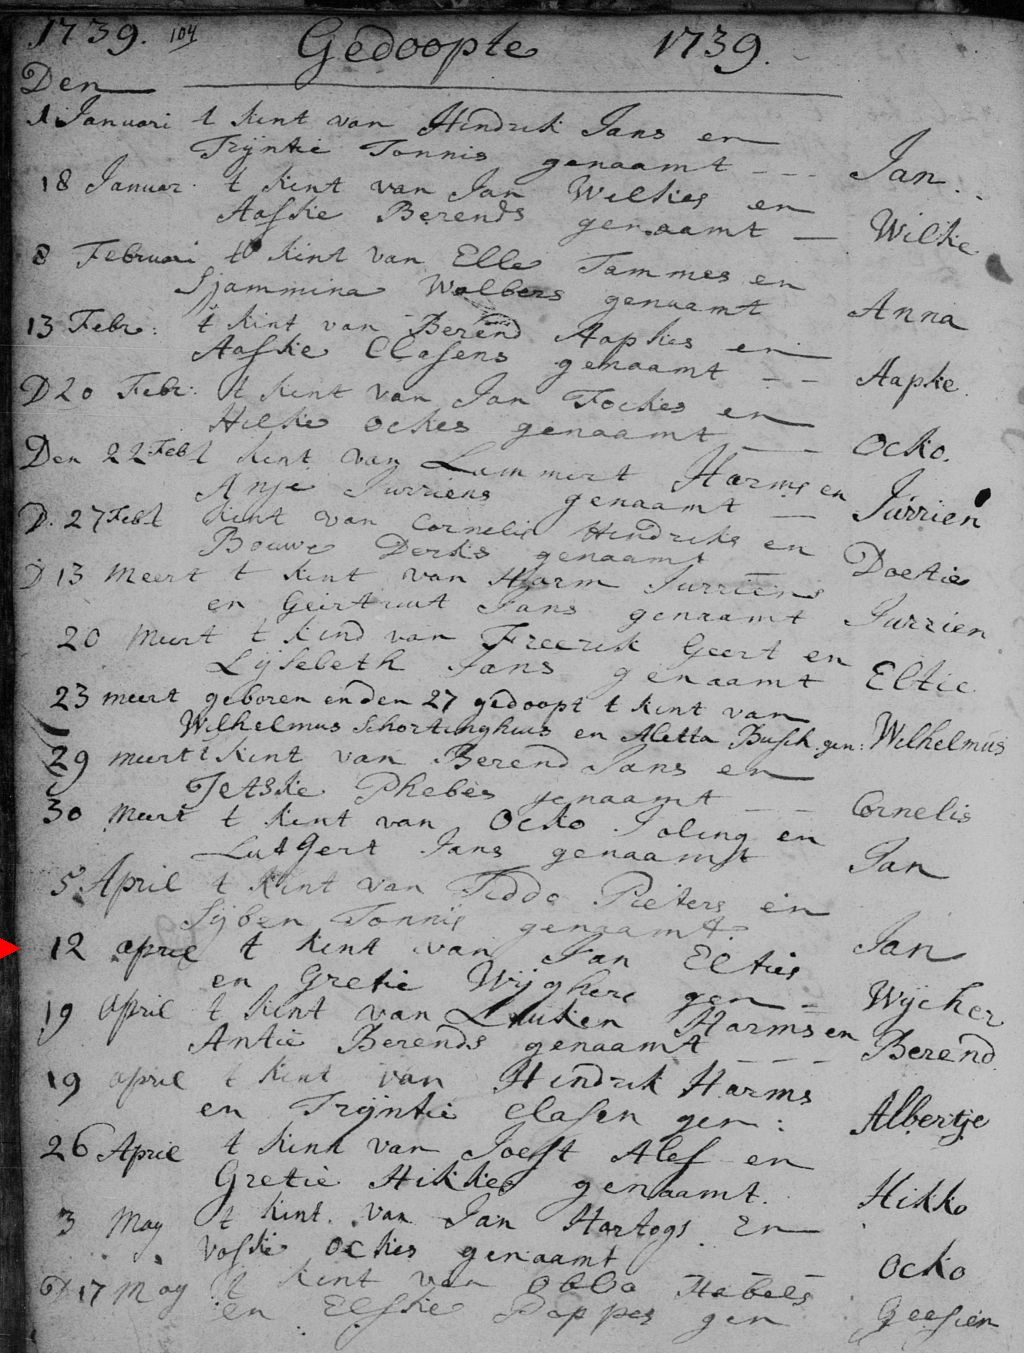 1739. 104 Gedoopte 1739.
Den
1 Januari t kint van Hindrik Jans en
Trijntie Tonnis genaamt - - - Jan.
18 Januar. t kint van Jan Wilkies en
Aafke Berends genaamt — Wilke
8 Februari t kint van Elle Tammes en
Sjammina Wolbers genaamt Anna
13 Febr: t kint van Berend Aapkes en
Aafke Clasens genaamt - - Aapke.
D 20 Febr: t kint van Jan Fockes en
Hilke Ockes genaamt — Ocko.
Den 22 Feb t kint van Lammert Harms en
Anje Jurriens genaamt — Jurrien
D. 27 Feb t kint van Cornelis Hindriks en
Bouwe Derks genaamt — Doetie
D 13 Meert t kint van Harm Jurriens
en Geertruut Jans genaamt Jurrien
20 Meert t kind van Freerik Geert en
Lijsebeth Jans genaamt Eltie
23 meert geboren en den 27 gedoopt t kint van
Wilhelmus Schortinghuis en Aletta Busch gen: Wilhelmus
29 meert t kint van Berend Jans en
Jetske Phebes genaamt - - - Cornelis
30 Meert t kint van Ocko Joling en
Lutgert Jans genaamt Jan
5 April t kint van Tidde Pieters en
Sijben Tonnis genaamt. Jan
12 april t kint van Jan Elties
en Gretie Wijghers gen - - Wijcher
19 April t kint van Luiken Harms en
Antie Berends genaamt - - - Berend.
19 april t kint van Hindrik Harms
en Trijntie Clasen gen: Albertje
26 April t kint van Joest Alef en
Gretie Hikkes genaamt. Hikko
3 May t kint van Jan Hartogs En
Voske Ockes genaamt Ocko
D 17 May t kint van Obbo Habels
en Elske Poppes gen Geesien